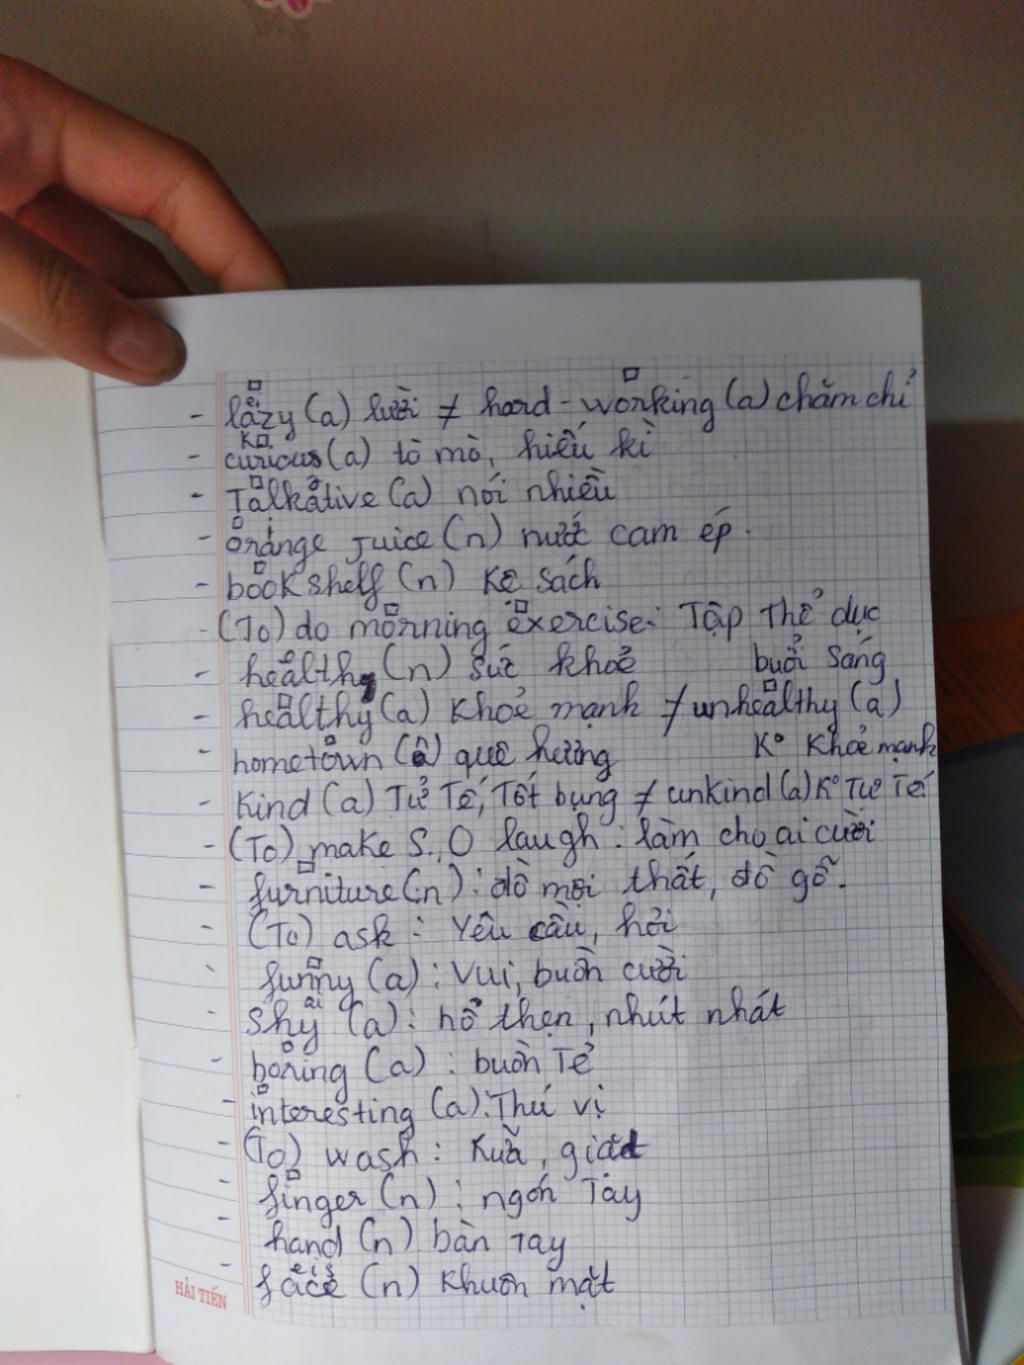 - lazy (a) lười ≠ hard-working (a) chăm chỉ
- curious (a) tò mò, hiếu kì
- Talkative (a) nói nhiều
- orange juice (n) nước cam ép.
- bookshelf (n) Kệ sách
- (To) do morning exercise: Tập Thể dục
buổi sáng
- health (n) sức khoẻ
- healthy (a) Khoẻ mạnh ≠ unhealthy (a)
K° Khoẻ mạnh
- hometown quê hương
- Kind (a) Tử Tế, Tốt bụng ≠ unkind (a) K° Tử Tế.
- (To) make S.O laugh: làm cho ai cười
- furniture (n): đồ mọi thất, đồ gỗ.
- (To) ask: Yêu cầu, hỏi
- funny (a): Vui, buồn cười
- Shy (a): hổ thẹn, nhút nhát
- boring (a): buồn Tẻ
- interesting (a): Thú vị
- (To) wash: Rửa, giặt
- finger (n): ngón Tay
- hand (n) bàn Tay
- face (n) Khuôn mặt
HẢI TIẾN